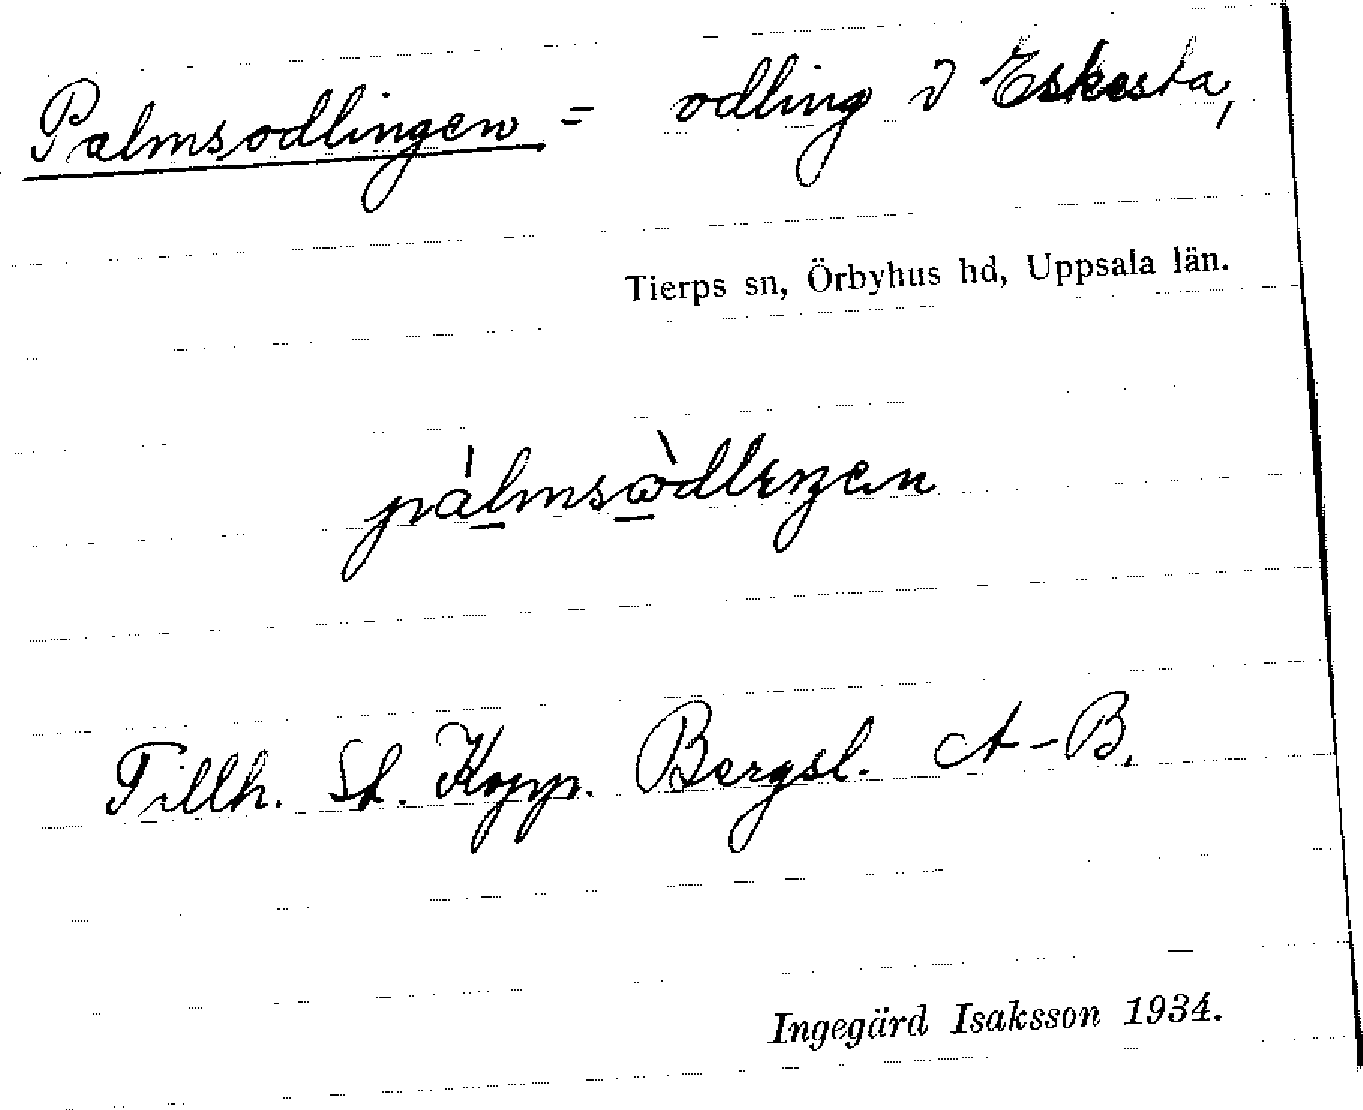 Palmsodlingen = odling i Eskesta,
Tierps sn, Örbyhus hd, Uppsala län.
Tillh. St. Kopp. Bergsl. A-B.
Ingegärd Isaksson 1934.